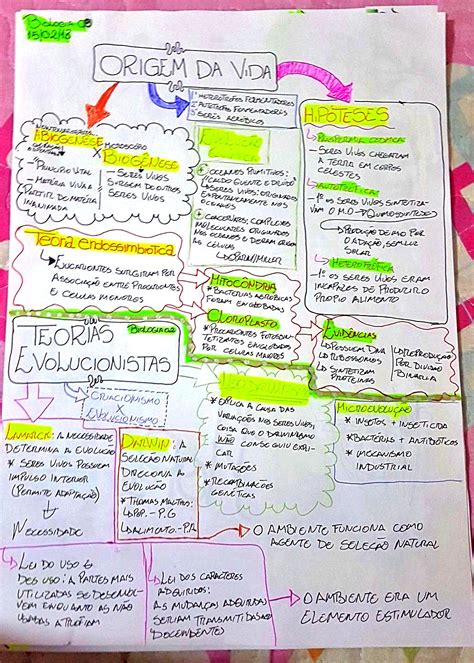 Biologia 02
15/02/18
ORIGEM DA VIDA
1º HETERÓTROFOS FERMENTADORES
2º AUTÓTROFOS FERMENTADORES
3º SERES AERÓBICOS
HIPÓTESES
ABIOGÊNESE
- PRINCÍPIO VITAL
- MATÉRIA VIVA A
PARTIR DE MATÉRIA
INANIMADA
MICROSCÓPIO
BIOGÊNESE
- SERES VIVOS
SURGEM DE OUTROS
SERES VIVOS
EVOLUÇÃO
QUÍMICA
OCEANOS PRIMITIVOS:
SERES VIVOS ORIGINADOS
ESPONTANEAMENTE NOS
OCEANOS
COACERVADOS: COMPLEXOS
MOLECULARES ORIGINADOS
NOS OCEANOS E DERAM ORIGEM
ÀS CÉLULAS
OPARIN/MILLER
PANSPERMIA CÓSMICA
- SERES VIVOS CHEGARAM
À TERRA EM CORPOS
CELESTES
AUTOTRÓFICA
- 1º OS SERES VIVOS SINTETIZA-
VAM O M.O → QUIMIOSSÍNTESE
PRODUÇÃO DE MO POR
OXIDAÇÃO, SEM LUZ
SOLAR
HETEROTRÓFICA
- 1º OS SERES VIVOS ERAM
INCAPAZES DE PRODUZIR O
PRÓPIO ALIMENTO
Teoria endossimbiótica
EUCARIONTES SURGIRAM POR
ASSOCIAÇÃO ENTRE PROCARIONTES
E CÉLULAS MENORES
MITOCÔNDRIA
* BACTÉRIAS AERÓBICAS
FORAM ENGLOBADAS
CLOROPLASTO
* PROCARIONTES FOTOSSIN-
TETIZANTES ENGLOBADAS
POR CÉLULAS MAIORES
EVIDÊNCIAS
POSSUEM DNA
RIBOSSOMOS
SINTETIZAM
PROTEÍNAS
REPRODUÇÃO
POR DIVISÃO
BINÁRIA
TEORIAS
EVOLUCIONISTAS
Biologia 02
CRIACIONISMO
X
EVOLUCIONISMO
* EXPLICA A CAUSA DAS
VARIAÇÕES NOS SERES VIVOS,
COISA QUE O DARWINISMO
NÃO CONSEGUIU EXPLI-
CAR
* MUTAÇÕES
* RECOMBINAÇÕES
GENÉTICAS
MICROEVOLUÇÃO
* INSETOS + INSETICIDA
* BACTÉRIAS + ANTIBIÓTICOS
* MECANISMO
INDUSTRIAL
LAMARCK: A NECESSIDADE
DETERMINA A EVOLUÇÃO
* SERES VIVOS POSSUEM
IMPULSO INTERIOR
(PERMITE ADAPTAÇÃO)
NECESSIDADE
DARWIN: A
SELEÇÃO NATURAL
DIRECIONA A
EVOLUÇÃO
* THOMAS MALTHUS:
POP. - P.G
ALIMENTO - P.A
O AMBIENTE FUNCIONA COMO
AGENTE DE SELEÇÃO NATURAL
LEI DO USO E
DESUSO: A PARTES MAIS
UTILIZADAS SE DESENVOL-
VEM ENQUANTO AS NÃO
USADAS ATROFIAM
LEI DOS CARACTERES
ADQUIRIDOS:
AS MUDANÇAS ADQUIRIDAS
SERIAM TRANSMITIDAS AOS
DESCENDENTES
O AMBIENTE ERA UM
ELEMENTO ESTIMULADOR